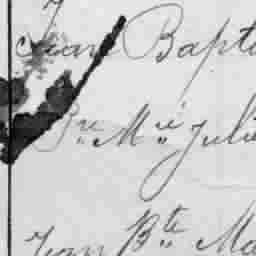 Jean Bapti
Bte Mie Julie
Jean Bte Ma